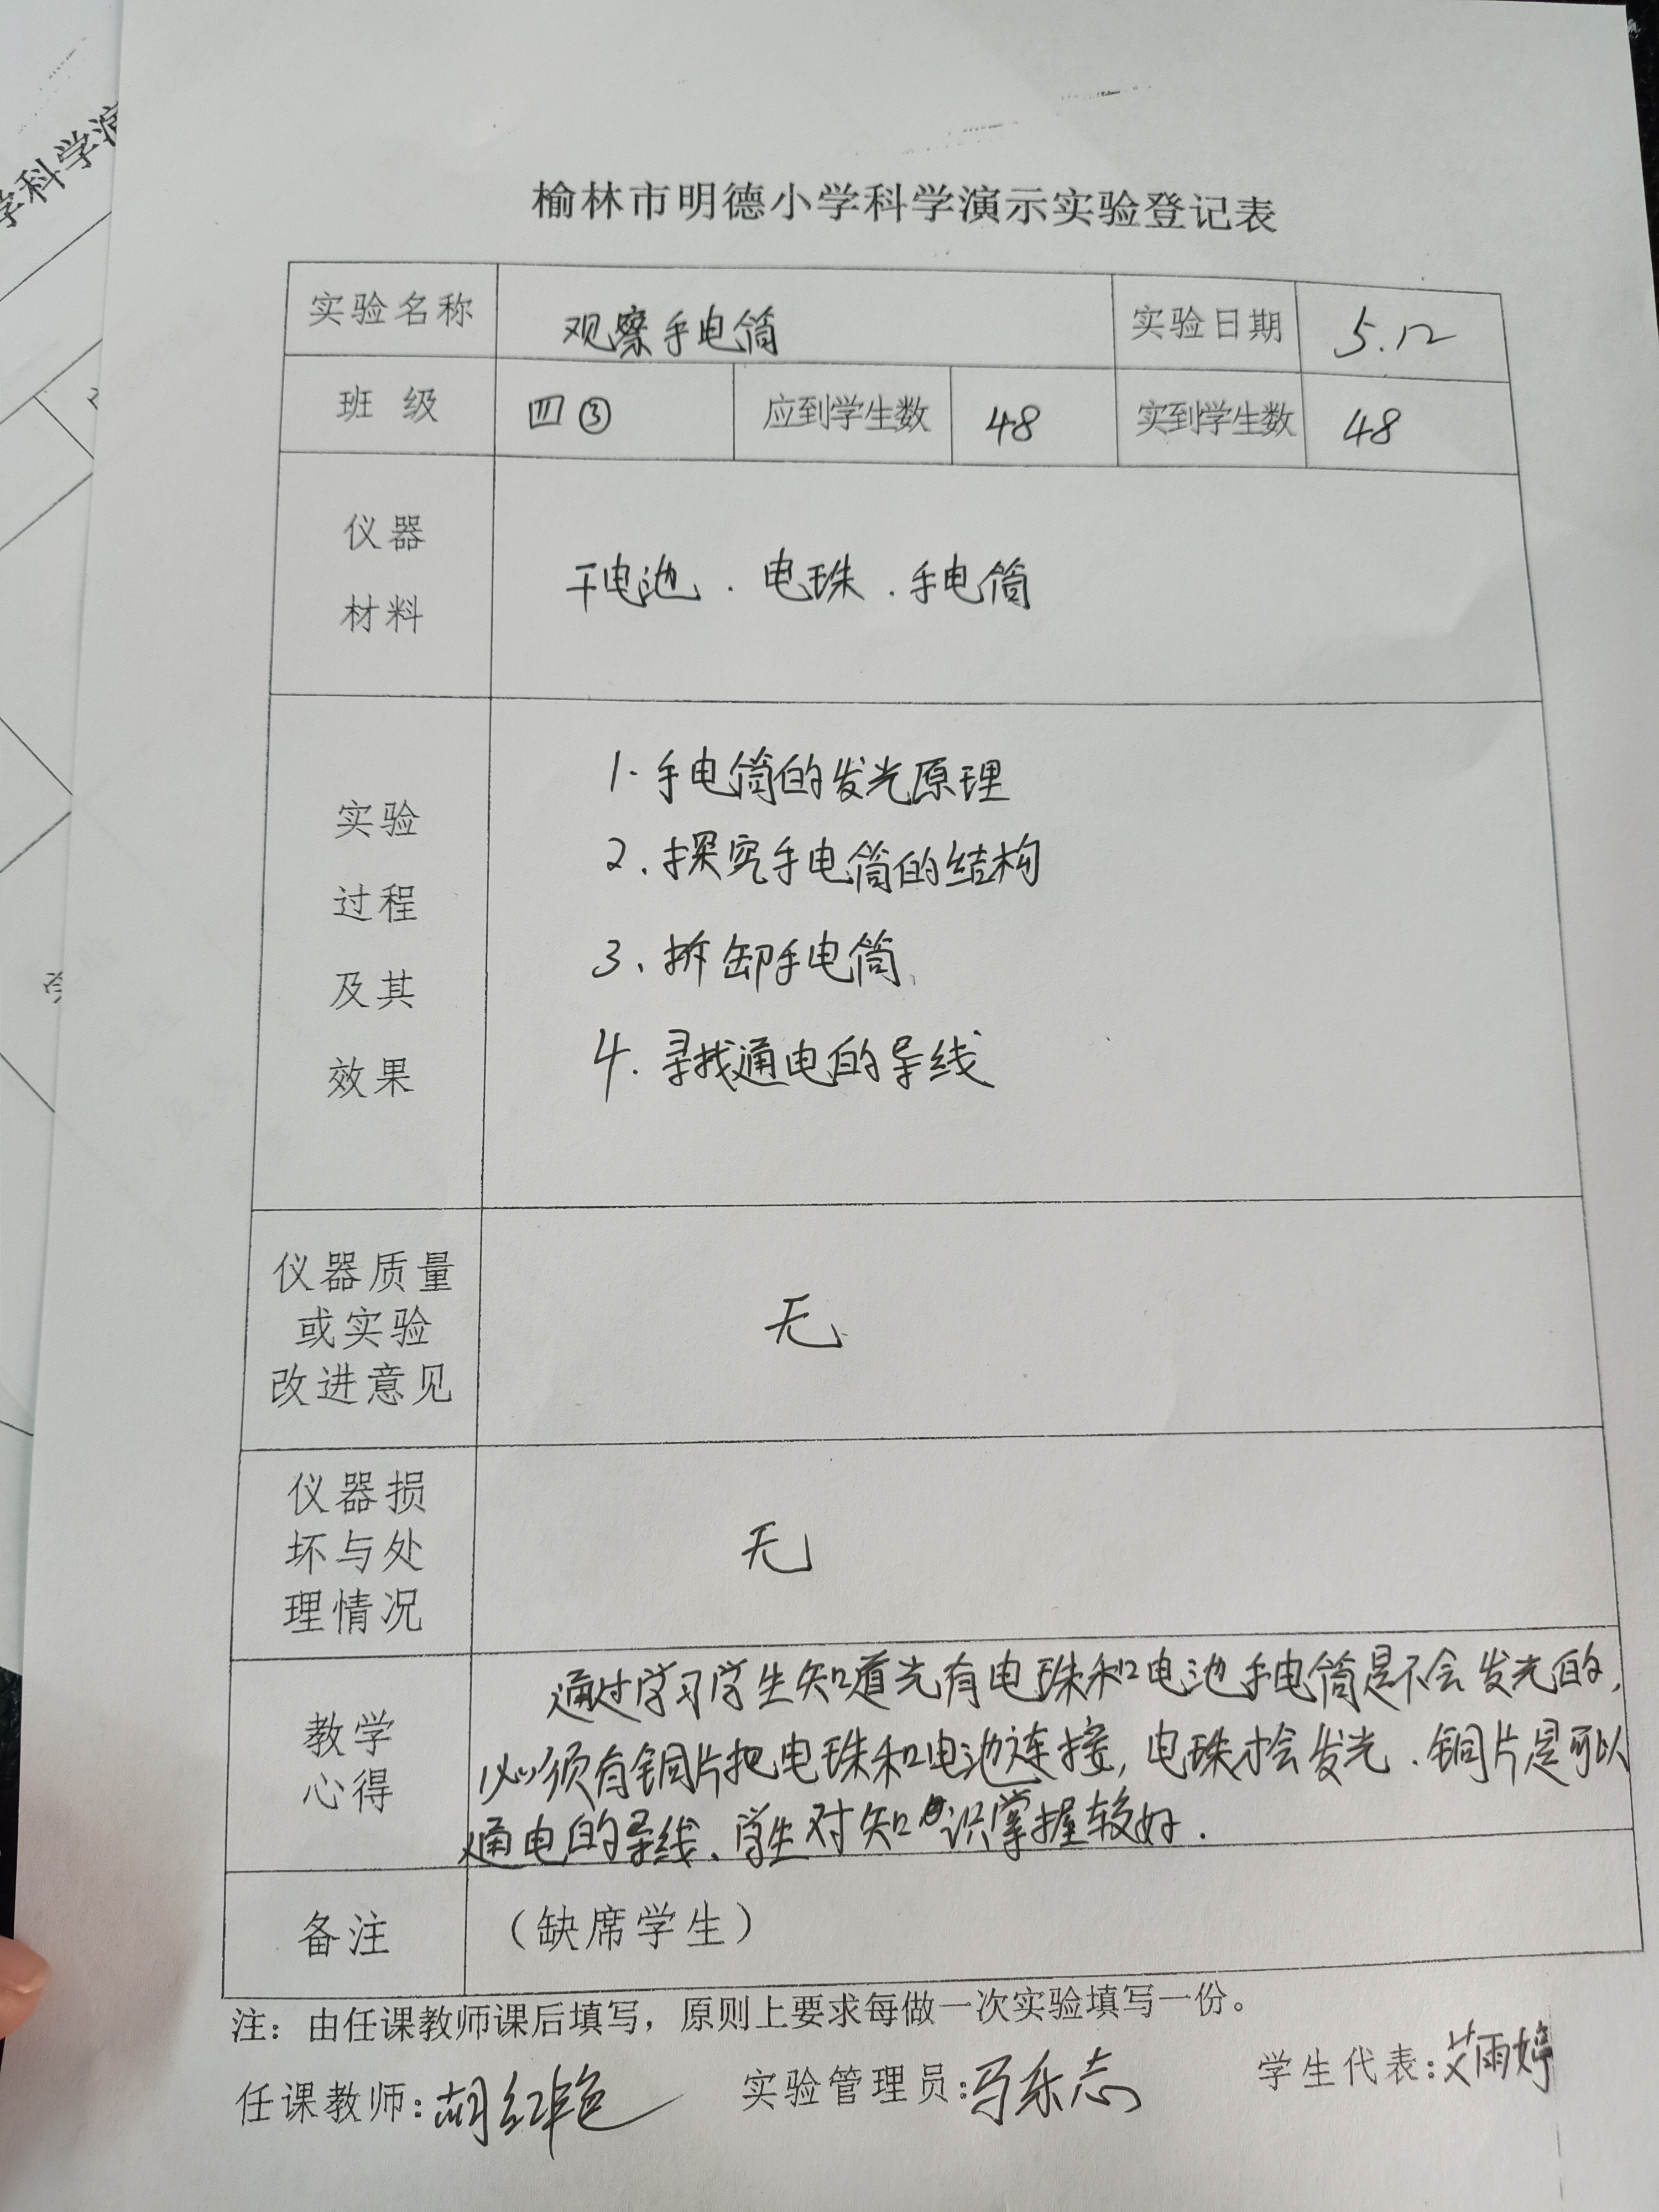 学科学演
榆林市明德小学科学演示实验登记表
实验名称 观察手电筒 实验日期 5.12
班 级 四③ 应到学生数 48 实到学生数 48
仪器
材料
干电池．电珠．手电筒
实验
过程
及其
效果
1.手电筒的发光原理
2.探究手电筒的结构
3、拆卸手电筒
4.寻找通电的导线
仪器质量
或实验
改进意见
无
仪器损
坏与处
理情况
无
教学
心得
通过学习学生知道光有电珠和电池手电筒是不会发光的，
必须有铜片把电珠和电池连接，电珠才会发光．铜片是可以
通电的导线、学生对知识掌握较好．
备注 （缺席学生）
注：由任课教师课后填写，原则上要求每做一次实验填写一份。
任课教师：胡红艳 实验管理员：马东志 学生代表：艾雨婷